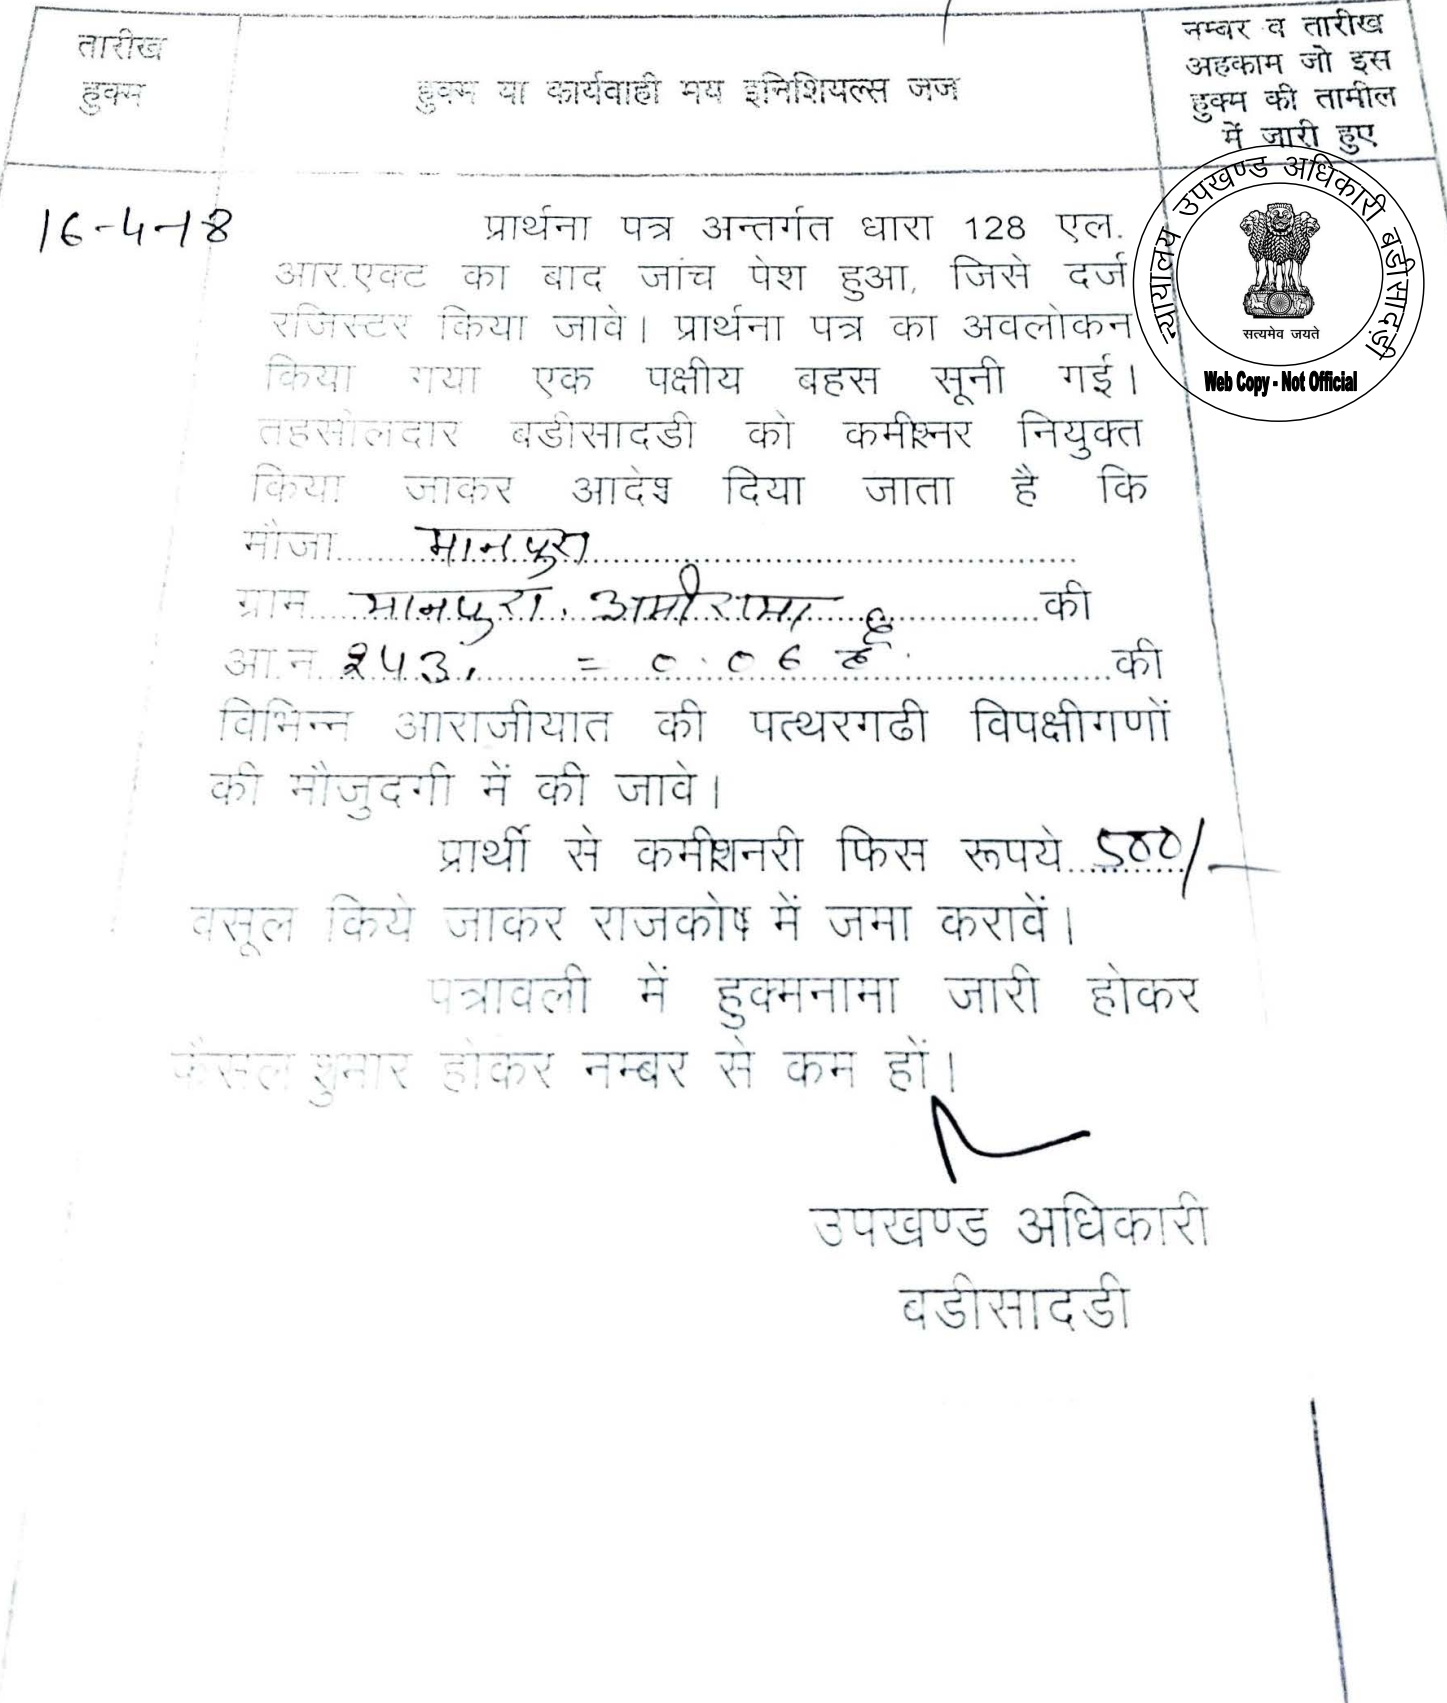 तारीख
हुक्म
हुक्म या कार्यवाही मय इनिशियल्स जज
नम्बर व तारीख
अहकाम जो इस
हुक्म की तामील
में जारी हुए
न्यायालय उपखण्ड अधिकारी बडीसादड़ी
सत्यमेव जयते
Web Copy - Not Official
16-4-18
प्रार्थना पत्र अन्तर्गत धारा 128 एल.
आर.एक्ट का बाद जांच पेश हुआ, जिसे दर्ज
रजिस्टर किया जावे। प्रार्थना पत्र का अवलोकन
किया गया एक पक्षीय बहस सूनी गई।
तहसीलदार बडीसादडी को कमीश्नर नियुक्त
किया जाकर आदेश दिया जाता है कि
मौजा.....मानपुरा.....
ग्राम.....मानपुरा.....की
आ.न. 243, = 0.06 है. .....की
विभिन्न आराजीयात की पत्थरगढी विपक्षीगणों
की मौजुदगी में की जावे।
प्रार्थी से कमीशनरी फिस रूपये 500/-
वसूल किये जाकर राजकोष में जमा करावें।
पत्रावली में हुक्मनामा जारी होकर
फैसल शुमार होकर नम्बर से कम हों।
उपखण्ड अधिकारी
बडीसादडी